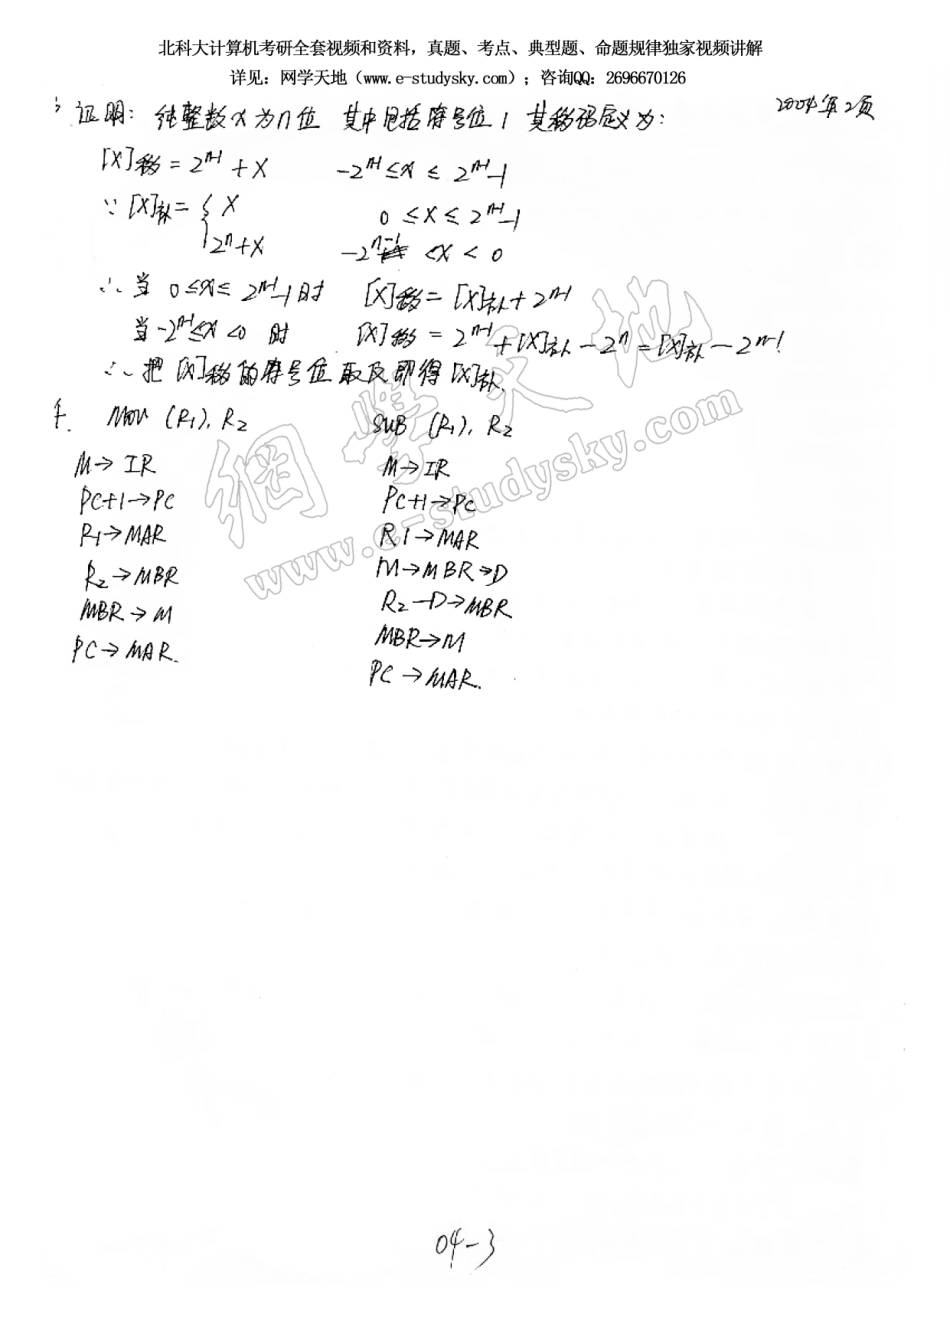 北科大计算机考研全套视频和资料，真题、考点、典型题、命题规律独家视频讲解
详见：网学天地（www.e-studysky.com）；咨询QQ：2696670126
2004年2页
证明：纯整数X为n位 其中包括符号位1 其移码定义为：
[X]移 = 2^{n-1} + X  -2^{n-1} ≤ x ≤ 2^{n-1}-1
∵ [X]补 = { X  0 ≤ X ≤ 2^{n-1}-1
2^n + X  -2^{n-1} < X < 0
∴ 当 0≤X≤ 2^{n-1}-1时 [X]移 = [X]补 + 2^{n-1}
当 -2^{n-1}≤X<0 时 [X]移 = 2^{n-1} + [X]补 - 2^n = [X]补 - 2^{n-1}
∴ 把[X]移的符号位取反即得[X]补.
MOV (R1), R2  SUB (R1), R2
M→IR  M→IR
PC+1→PC  PC+1→PC
R1→MAR  R1→MAR
R2→MBR  M→MBR→D
MBR→M  R2-D→MBR
PC→MAR.  MBR→M
PC→MAR.
網學天地
www.e-studysky.com
04-3